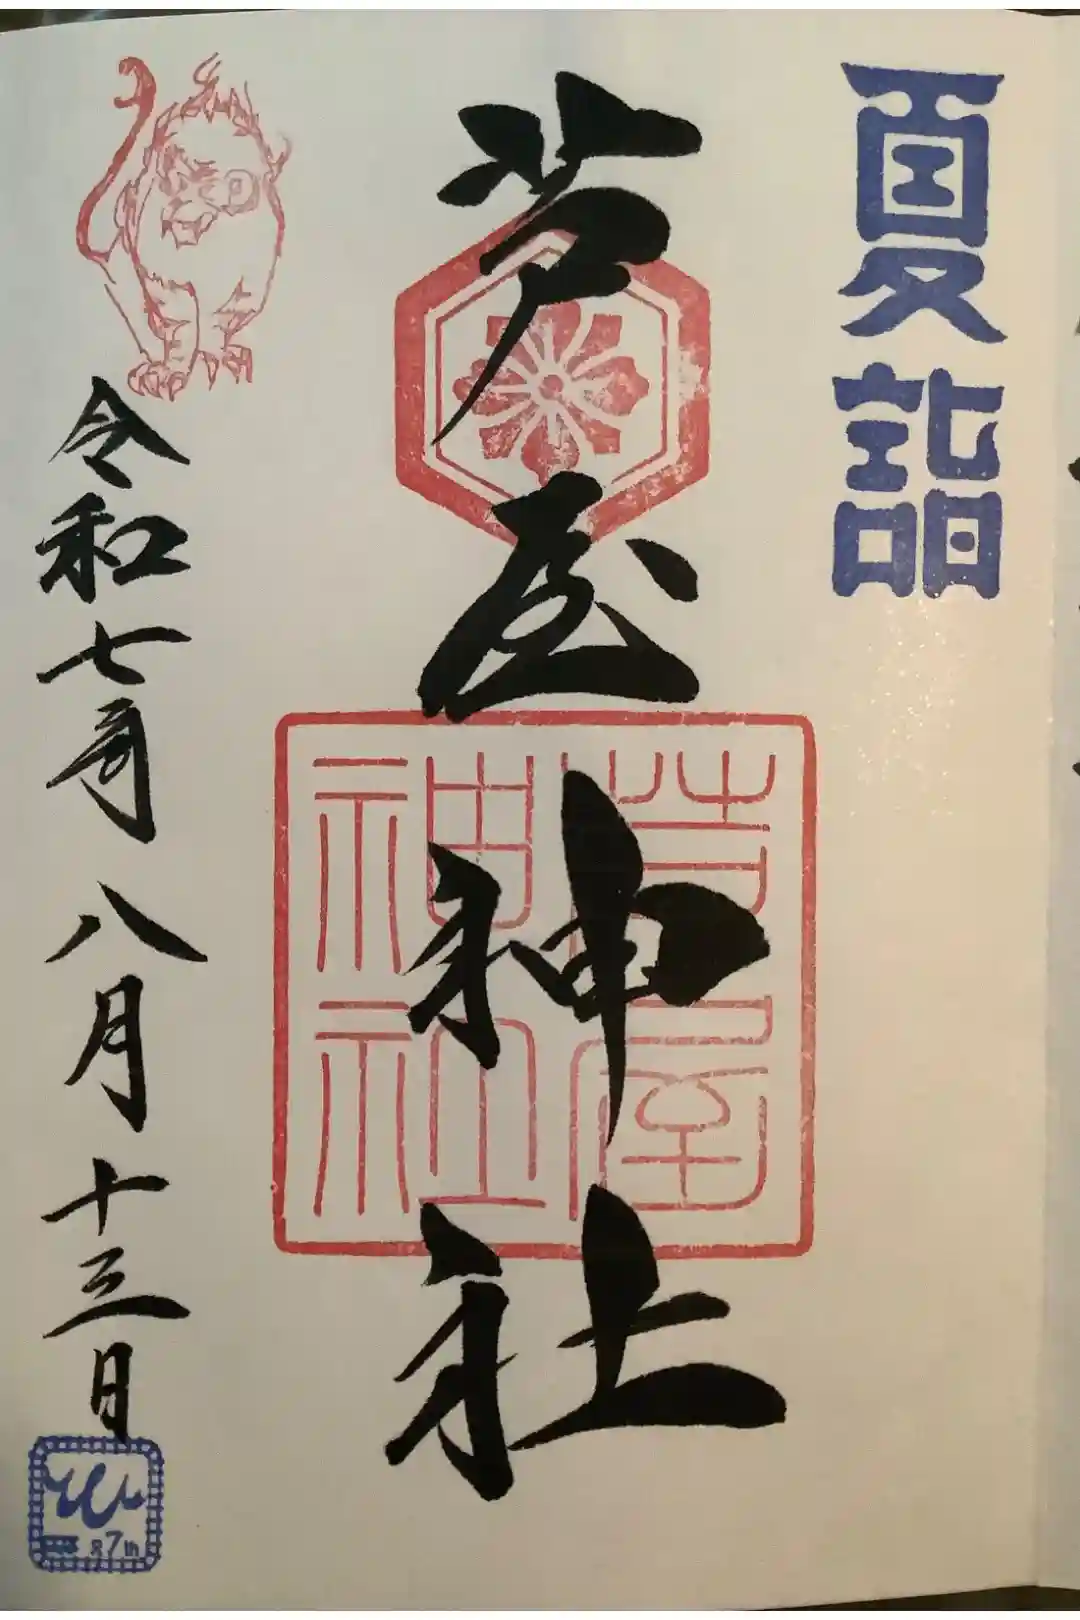 夏詣
芦屋神社
芦屋
神社
令和七年八月十三日
7th